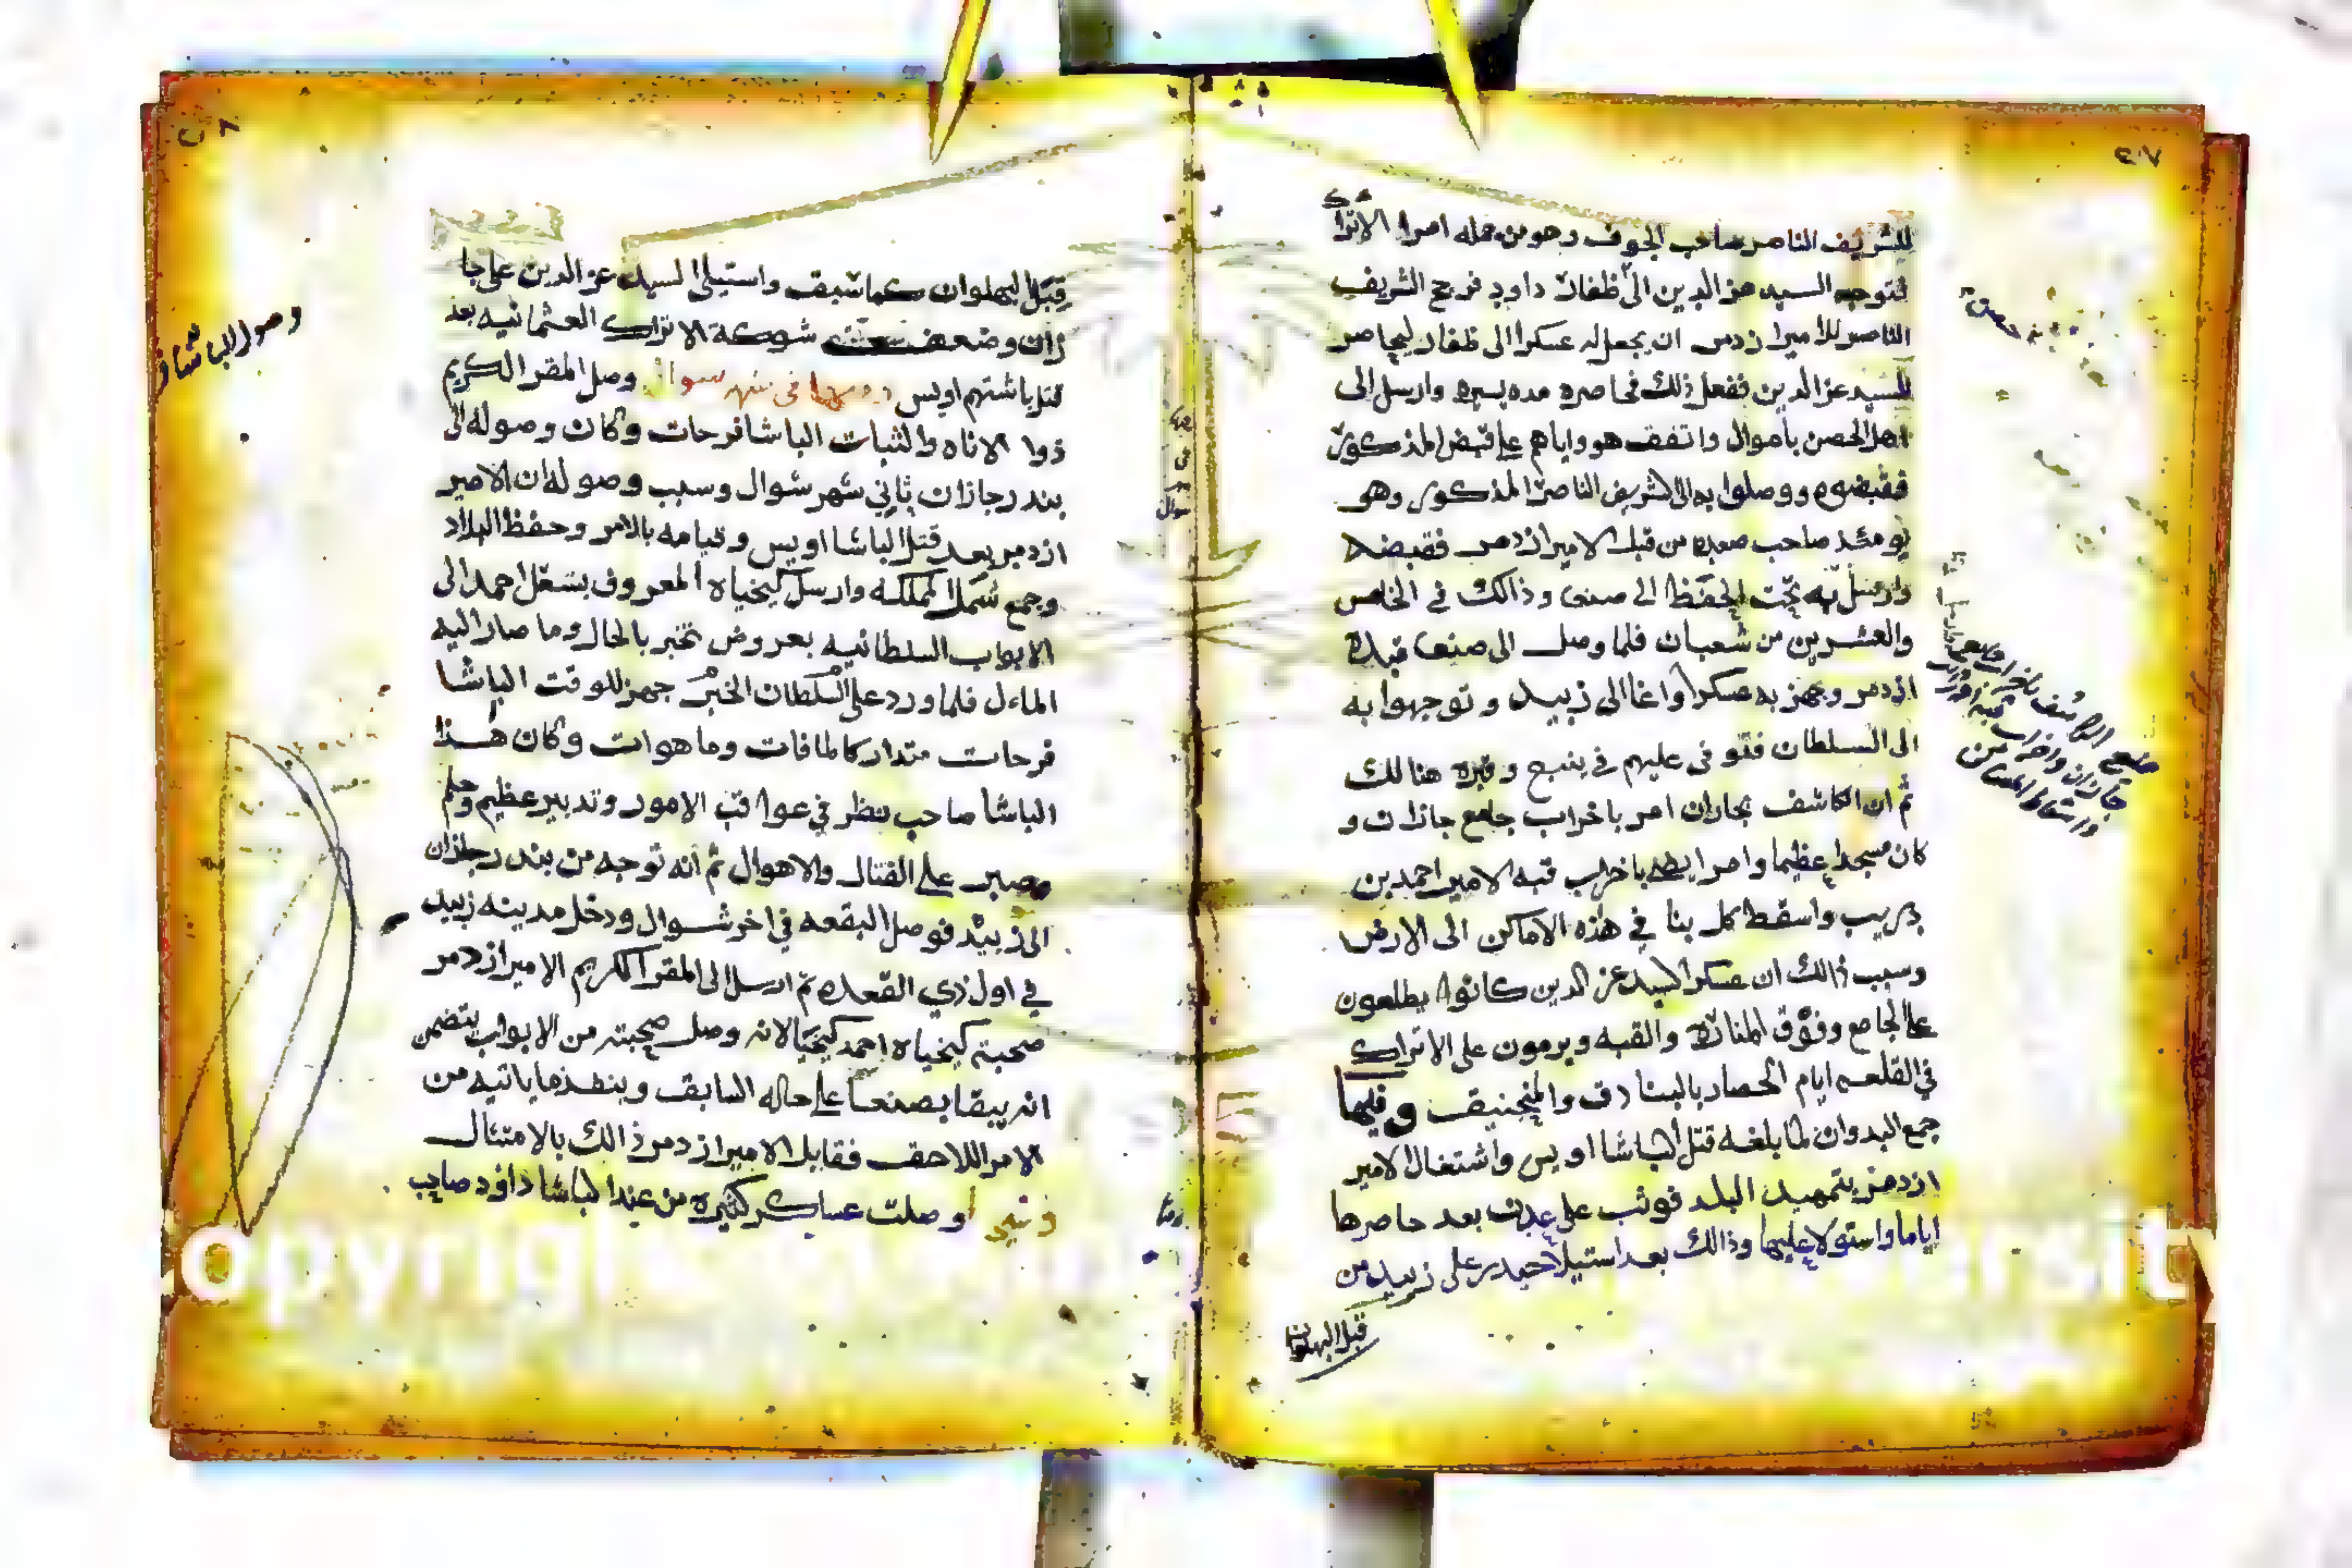 ٤٠٧
للشريف الناصر صاحب الجوف وهو من جمله امرا الاتراك
فتوجه السيد عز الدين الى ظفار داود فرجح الشريف
الناصر للامير ازدمر ان يجعل له عسكرا الى ظفار ليحاصر
للسيد عز الدين ففعل ذلك فحاصره مده يسيره وارسل الى
اهل الحصن باموال واتفق هو واياهم على قبض المذكور
فقبضوه ووصلوا به الى الشريف الناصر المذكور وهو
يومئذ صاحب صعده من قبل الامير ازدمر فقبضه
وارسل به تحت الحفظ الى صنعى وذالك في الخامس
والعشرين من شعبان فلما وصل الى صنعا قيده
ازدمر وجهز به عسكرا واغا الى زبيد وتوجهوا به
الى السلطان فتوفى عليهم في ينبع وقبره هنالك
ثم ان الكاشف بجازان امر باخراب جامع جازان و
كان مسجدا عظيما وامر ايضا باخراب قبه الامير احمد بن
دريب واسقط كل بنا في هذه الاماكن الى الارض
وسبب ذالك ان عسكر السيد عز الدين كانوا يطلعون
على الجامع وفوق المناره والقبه ويرمون على الاتراك
في القلعه ايام الحصار بالبنادق والمنجنيق وفيها
جمع البدوان لما بلغه قتل الباشا اويس واشتغال الامير
ازدمر بتمهيد البلد فوثب على عدن بعد حاصرها
اياما واستولا عليها وذالك بعد استيلا حيدر على زبيد من
قبل البهلوان
جازان واخراب قبه
واسقاط المساكن
قبل البهلوان كما سبق واستيلى السيد عز الدين على جا
زان وضعف شوكة الاتراك العثمانيه بعد
قتل باشتهم اويس في شهر شوال وصل المقر الكريم
ذوا الاناه والثبات الباشا فرحات وكان وصوله الى
بندر جازان ثاني شهر شوال وسبب وصوله ان الامير
ازدمر بعد قتل الباشا اويس وقيامه بالامر وحفظ البلاد
وجمع شمل المملكه وارسل كيخياه المعروف بشغل احمد الى
الابواب السلطانيه بعروض تخبر بالحال وما صار اليه
الماءل فلما ورد على السلطان الخبر جهز للوقت الباشا
فرحات متداركا لما فات وما هوات وكان هذا
الباشا صاحب نظر في عواقب الامور وتدبير عظيم وحلم
وصبر على القتال والاهوال ثم انه توجه من بندر جازان
الى زبيد فوصل البقعه في اخر شوال ودخل مدينه زبيد
في اول ذي القعده ثم ارسل الى المقر الكريم الامير ازدمر
صحبته كيخياه احمد كيخيا لانه وصل صحبته من الابواب يتضمن
انه يبقا بصنعا على حاله السابق وينفذ ما ياتيه من
الامر اللاحق فقابل الامير ازدمر ذالك بالامتثال
وفيها وصلت عساكر كثيره من عند الباشا داؤد صاحب
وصول الباشا